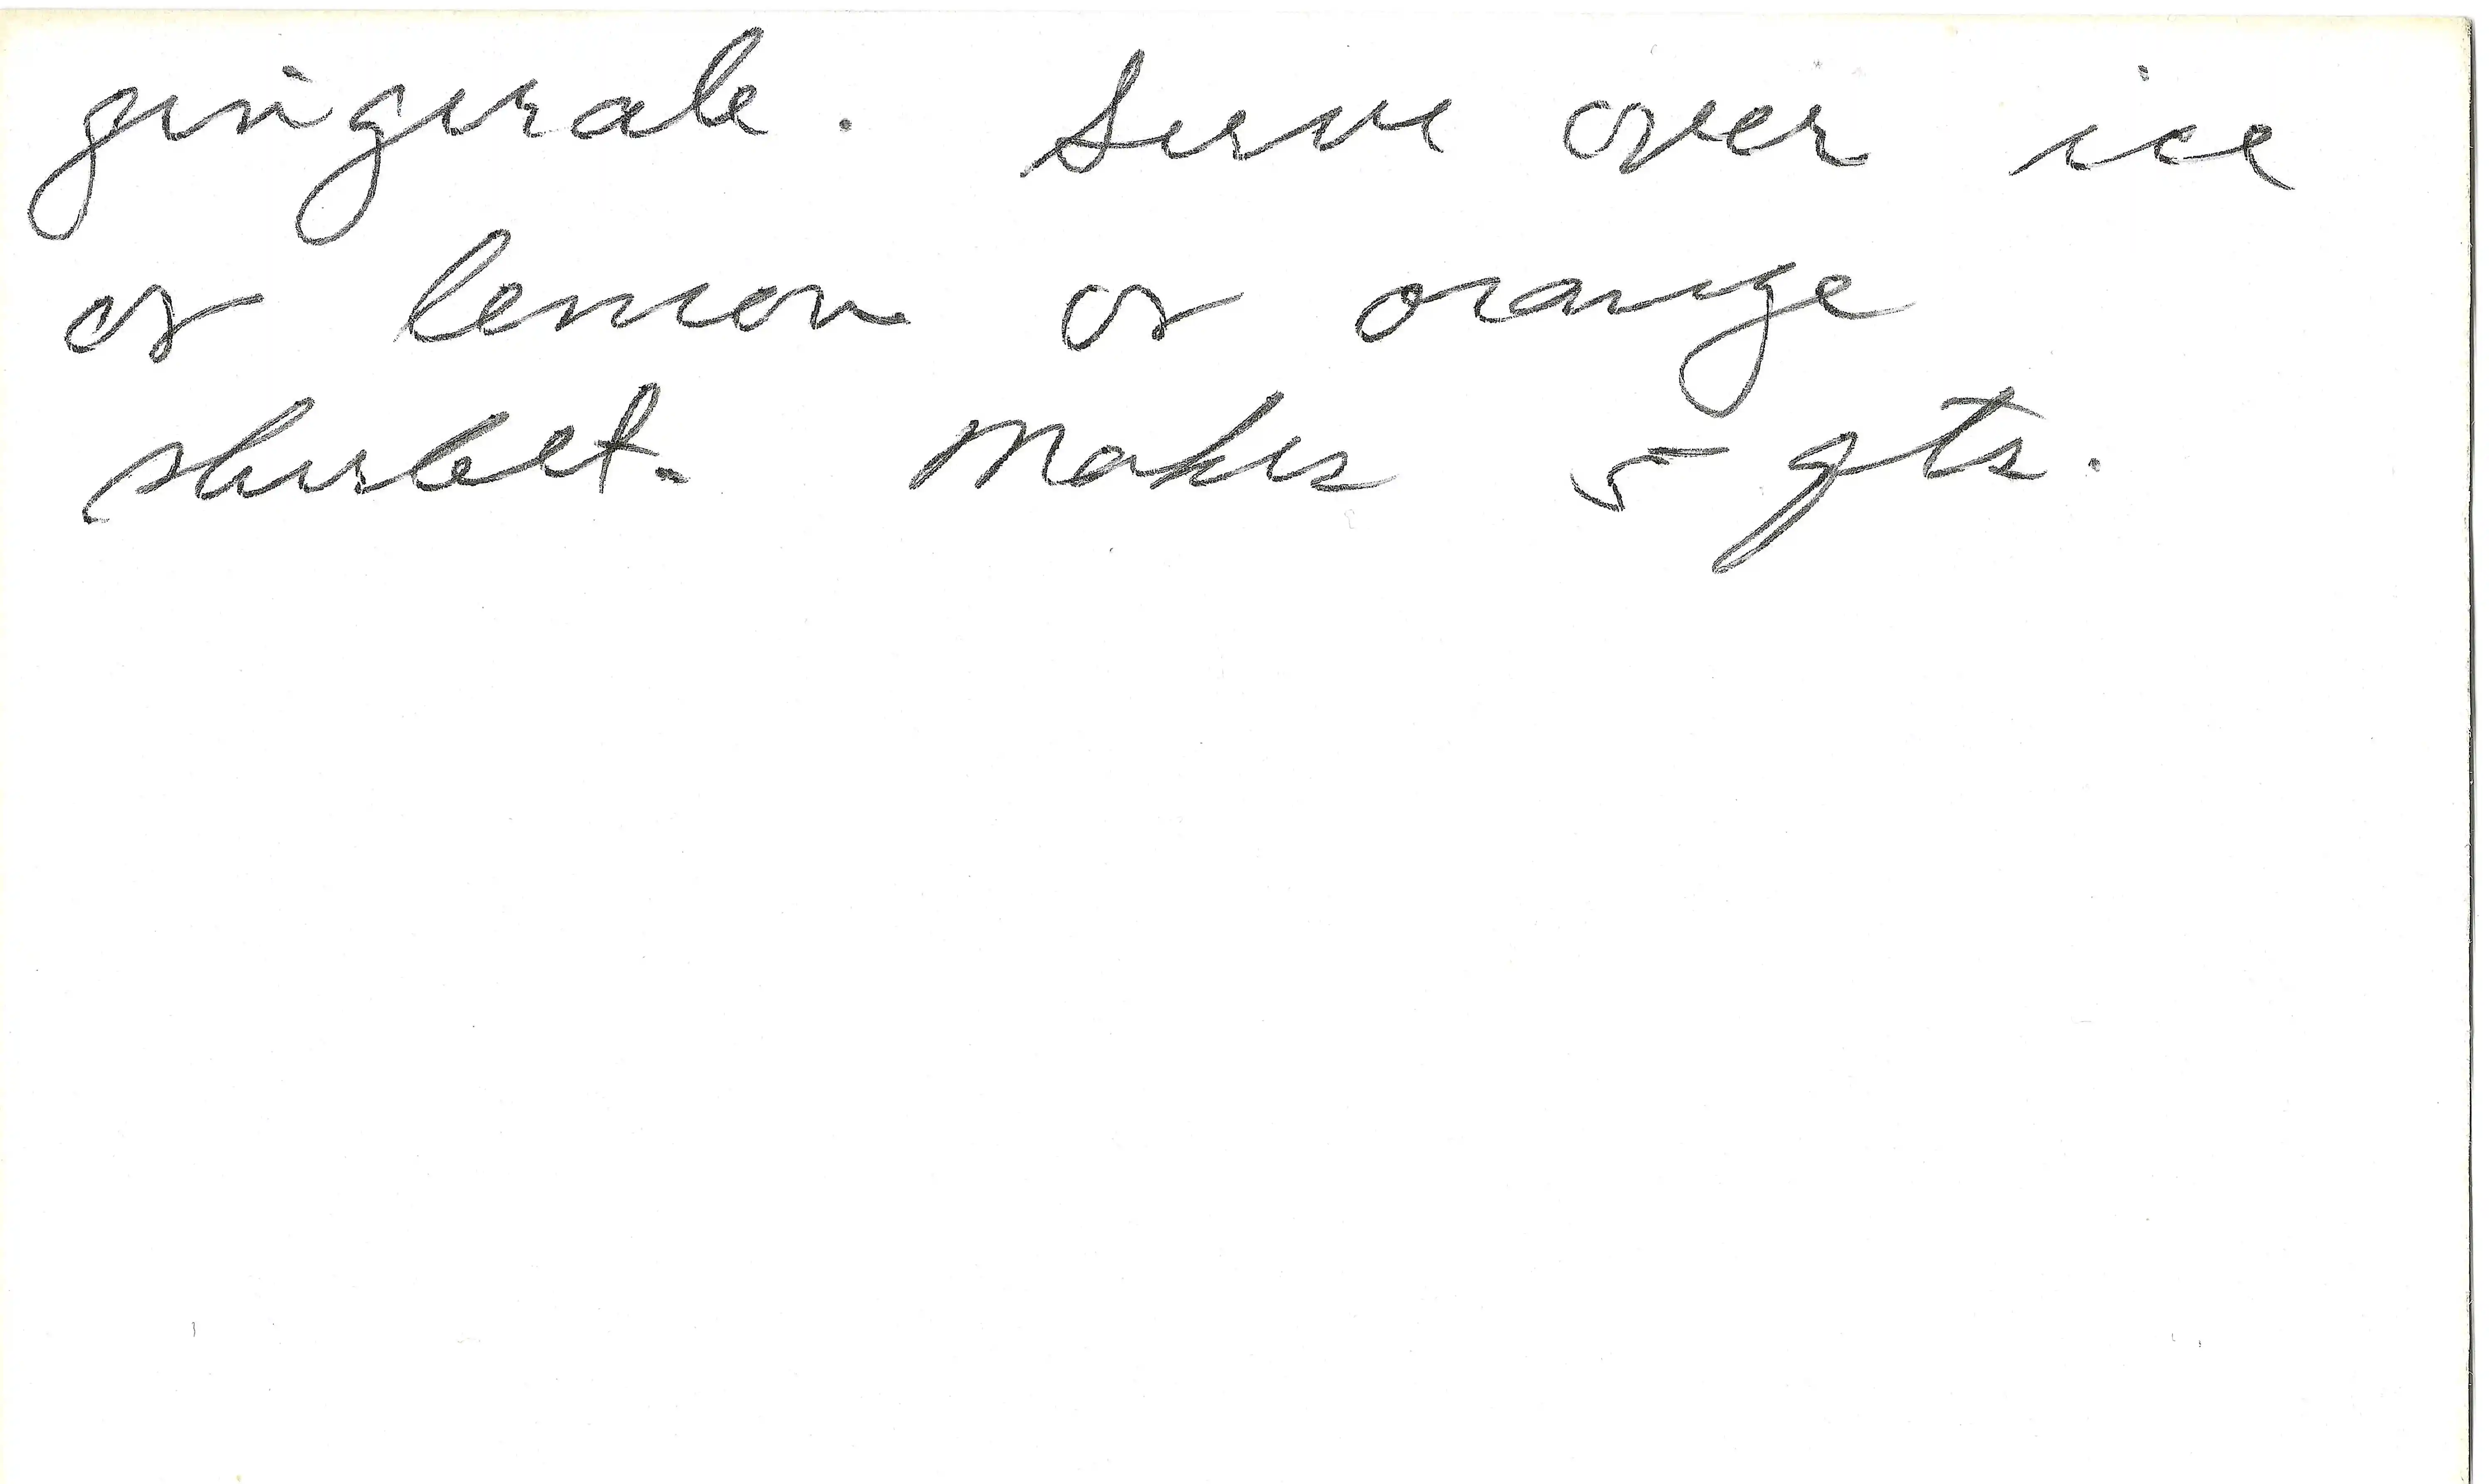 gingerale. Serve over ice
or lemon or orange
sherbet. Makes 5 qts.